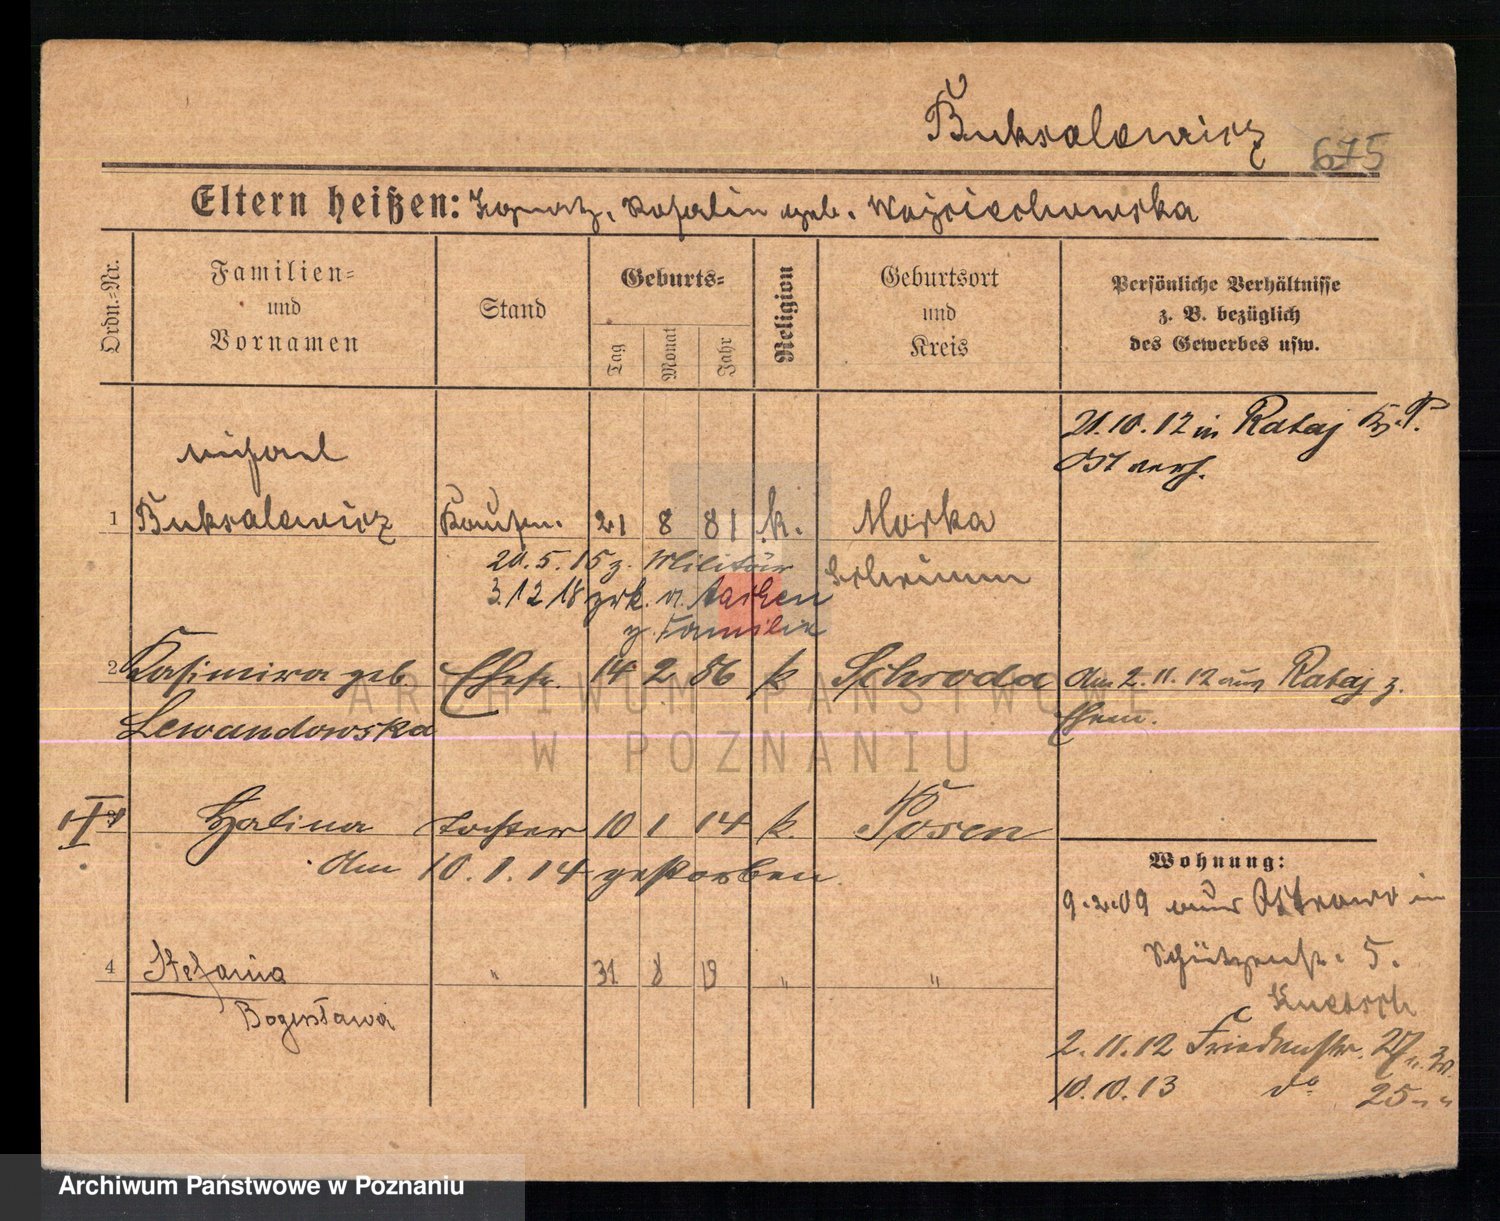 Buksalewicz 675
Eltern heißen: Ignatz, Rosalin geb. Wojciechowska
Ordn.-Nr.
Familien-
und
Vornamen
Stand
Geburts-
Tag
Monat
Jahr
Religion
Geburtsort
und
Kreis
Persönliche Verhältnisse
z. B. bezüglich
des Gewerbes usw.
21.10.12 in Rataj
Ost verh.
Michael
1 Buksalewicz Kaufm. 21 8 81 k. Morka
Schrimm
20.5.15 z. Militär
3.12.18 zrk. v. Aachen
z. Familie
2 Kasimira geb Ehefr. 14 2 86 k Schroda am 2.11.12 aus Rataj z.
Lewandowska Ehem.
Halina Tochter 10 1 14 k. Posen
am 10.1.14 gestorben
Wohnung:
9.2.09 aus Ostrowo in
Schützenstr. 5.
4 Stefania " 31 8 19 " "
Bogusława
2.11.12 Friedenstr. 27
10.10.13 do 25 " "
ARCHIWUM PAŃSTWOWE
W POZNANIU
Archiwum Państwowe w Poznaniu